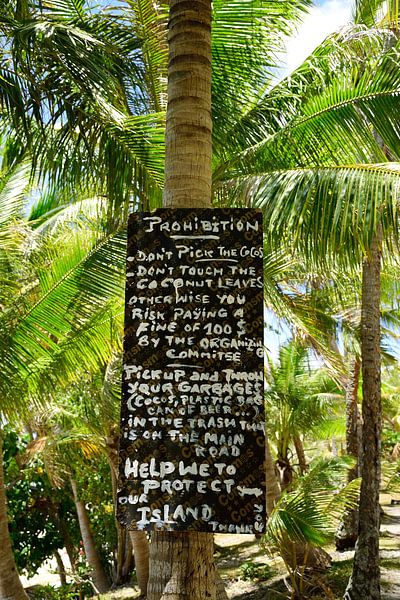 PROHIBITION
- DON'T PICK THE COCOS
- DON'T TOUCH THE
COCONUT LEAVES
OTHERWISE YOU
RISK PAYING A
FINE OF 100 $
BY THE ORGANIZING
COMMITEE
PICK UP AND THROW
YOUR GARBAGES
(COCOS, PLASTIC BAG
CAN OF BEER...)
IN THE TRASH THAT
IS ON THE MAIN
ROAD
HELP WE TO
PROTECT
OUR
ISLAND THANKS